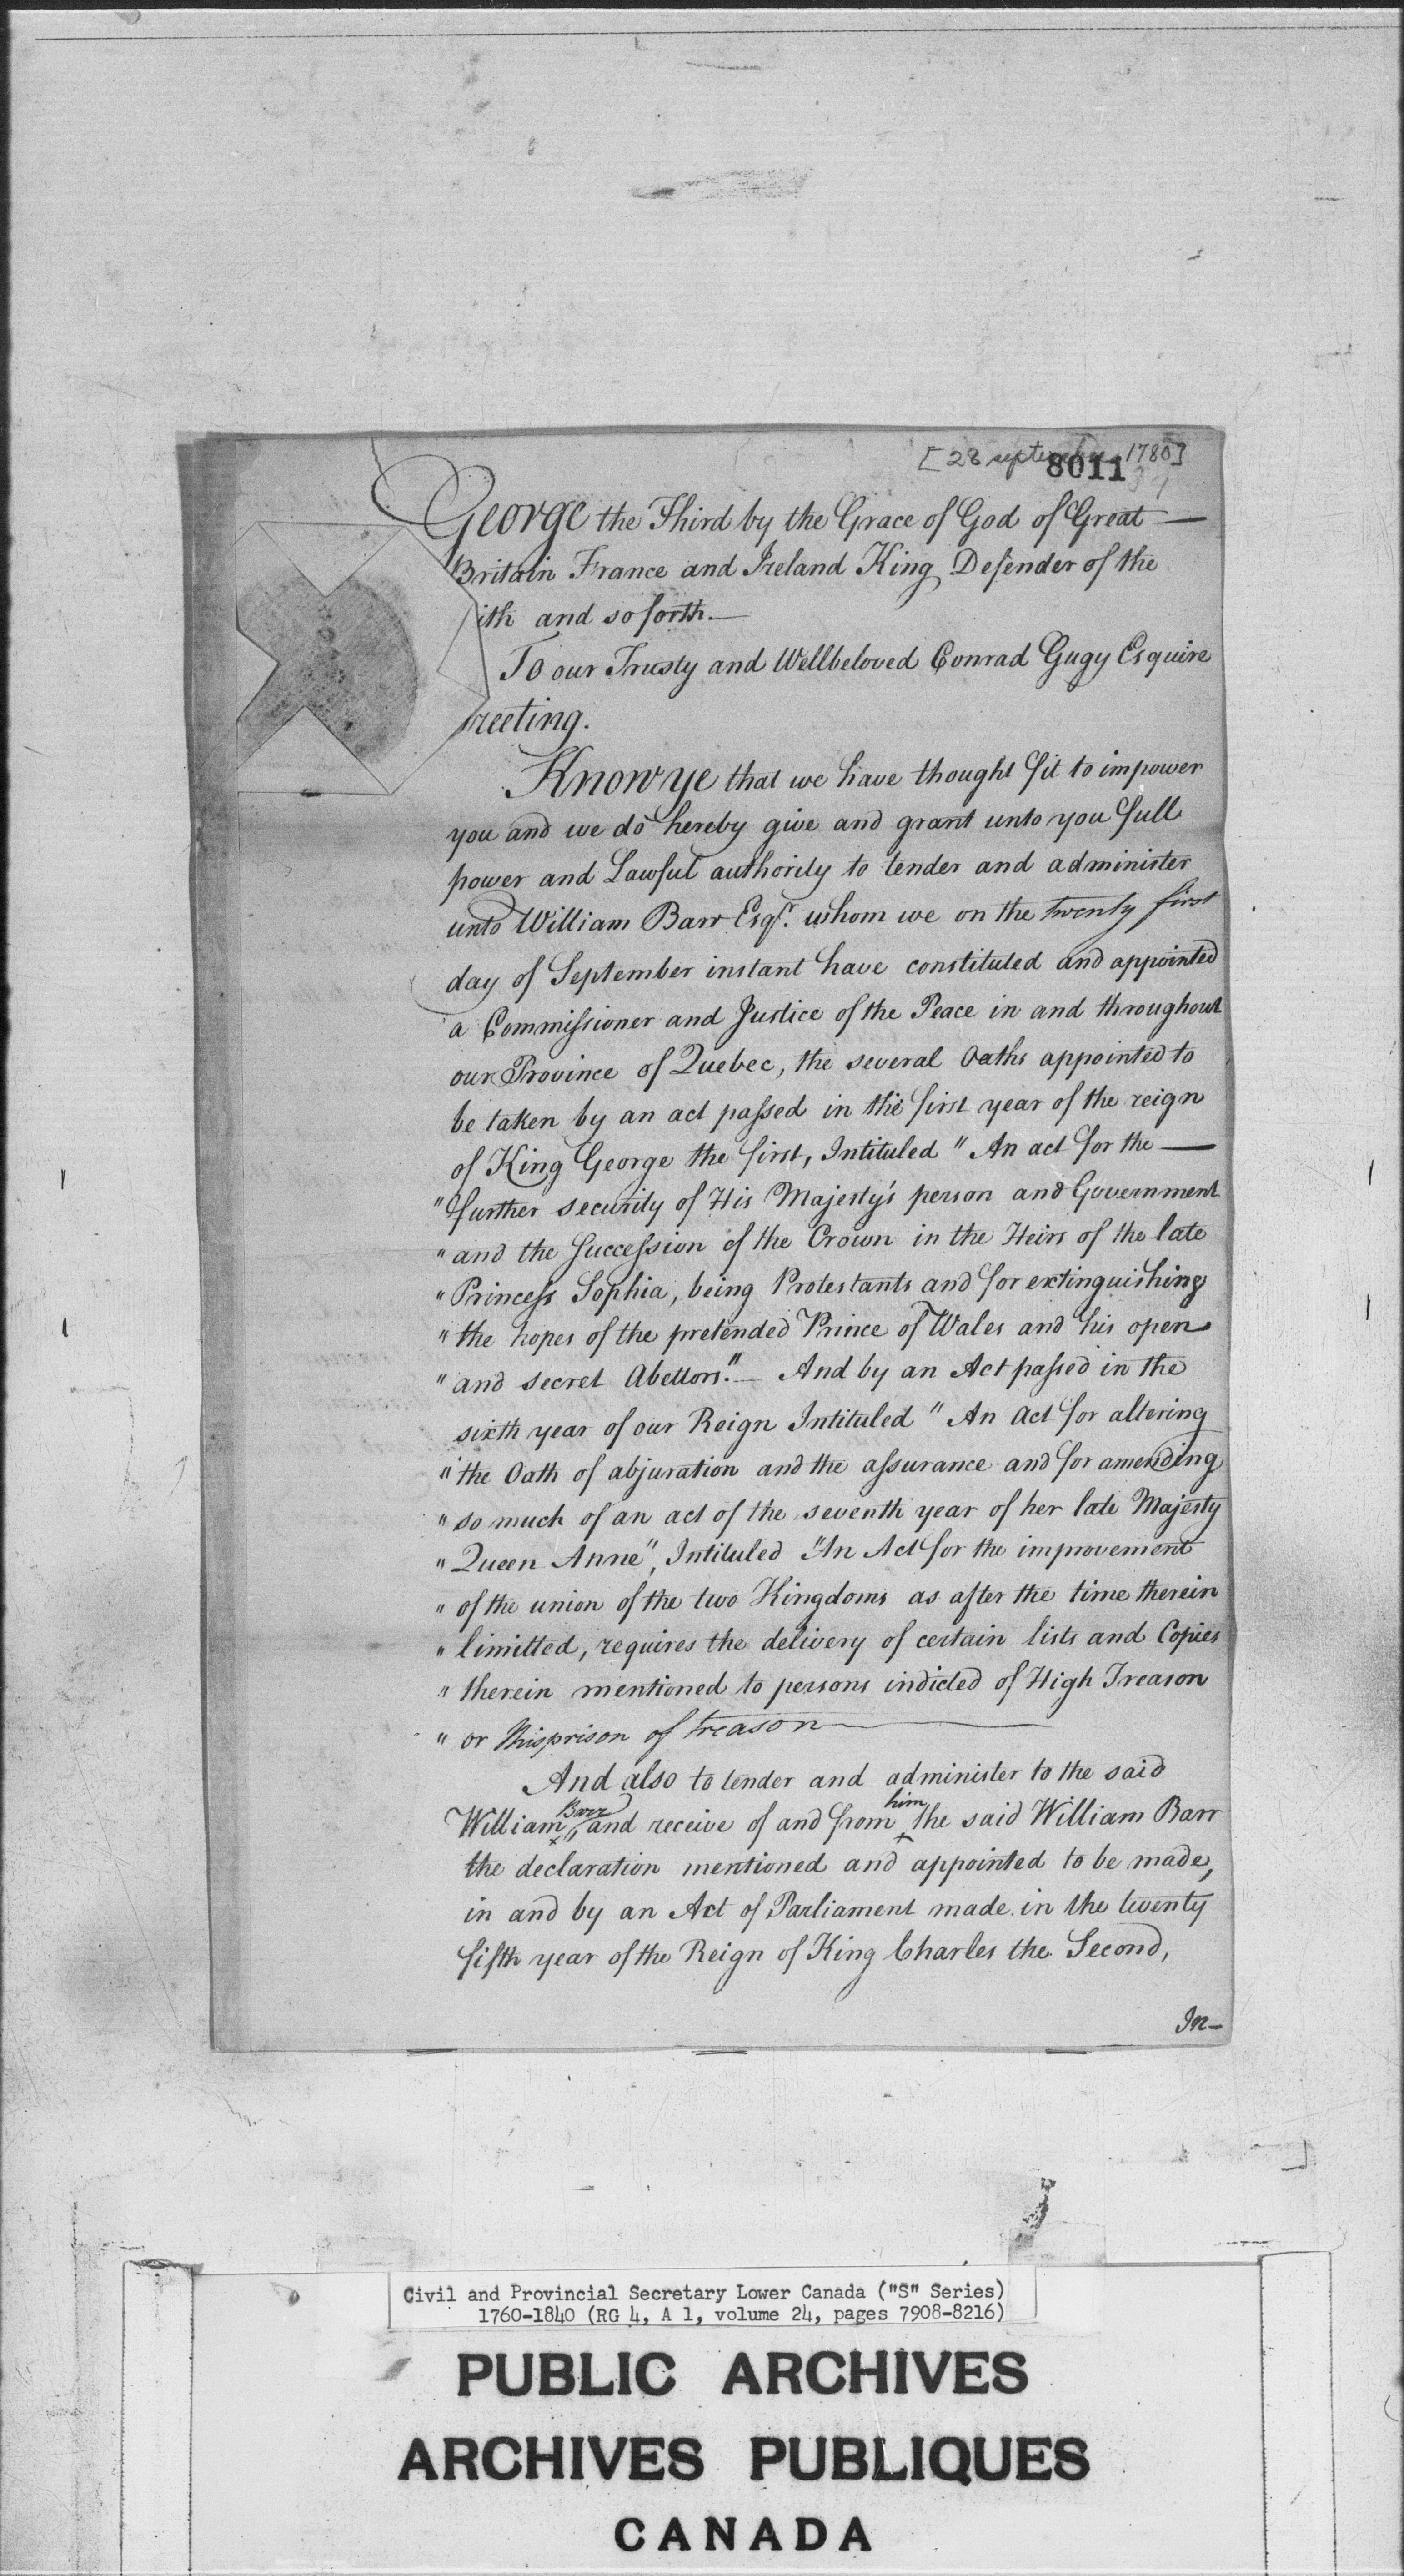 [28 september 1780]
8011
George the Third by the Grace of God of Great —
Britain France and Ireland King Defender of the
ith and so forth. —
To our Trusty and Wellbeloved Conrad Gugy Esquire
reeting.
Know ye that we have thought fit to impower
you and we do hereby give and grant unto you full
power and Lawful authority to tender and administer
unto William Barr Esqr. whom we on the twenty first
day of September instant have constituted and appointed
a Commissioner and Justice of the Peace in and throughout
our Province of Quebec, the several Oaths appointed to
be taken by an act passed in the first year of the reign
of King George the first, Intituled " An act for the —
" further security of His Majesty's person and Government
" and the Succession of the Crown in the Heirs of the late
" Princess Sophia, being Protestants and for extinguishing
" the hopes of the pretended Prince of Wales and his open
" and secret Abettors." — And by an Act passed in the
sixth year of our Reign Intituled " An Act for altering
" the Oath of abjuration and the assurance and for amending
" so much of an act of the seventh year of her late Majesty
" Queen Anne", Intituled "An Act for the improvement
" of the union of the two Kingdoms as after the time therein
" limitted, requires the delivery of certain lists and Copies
" therein mentioned to persons indicted of High Treason
" or Misprison of treason —
And also to tender and administer to the said
William Barr and receive of and from him the said William Barr
the declaration mentioned and appointed to be made,
in and by an Act of Parliament made in the twenty
fifth year of the Reign of King Charles the Second,
In-
Civil and Provincial Secretary Lower Canada ("S" Series)
1760-1840 (RG 4, A 1, volume 24, pages 7908-8216)
PUBLIC ARCHIVES
ARCHIVES PUBLIQUES
CANADA